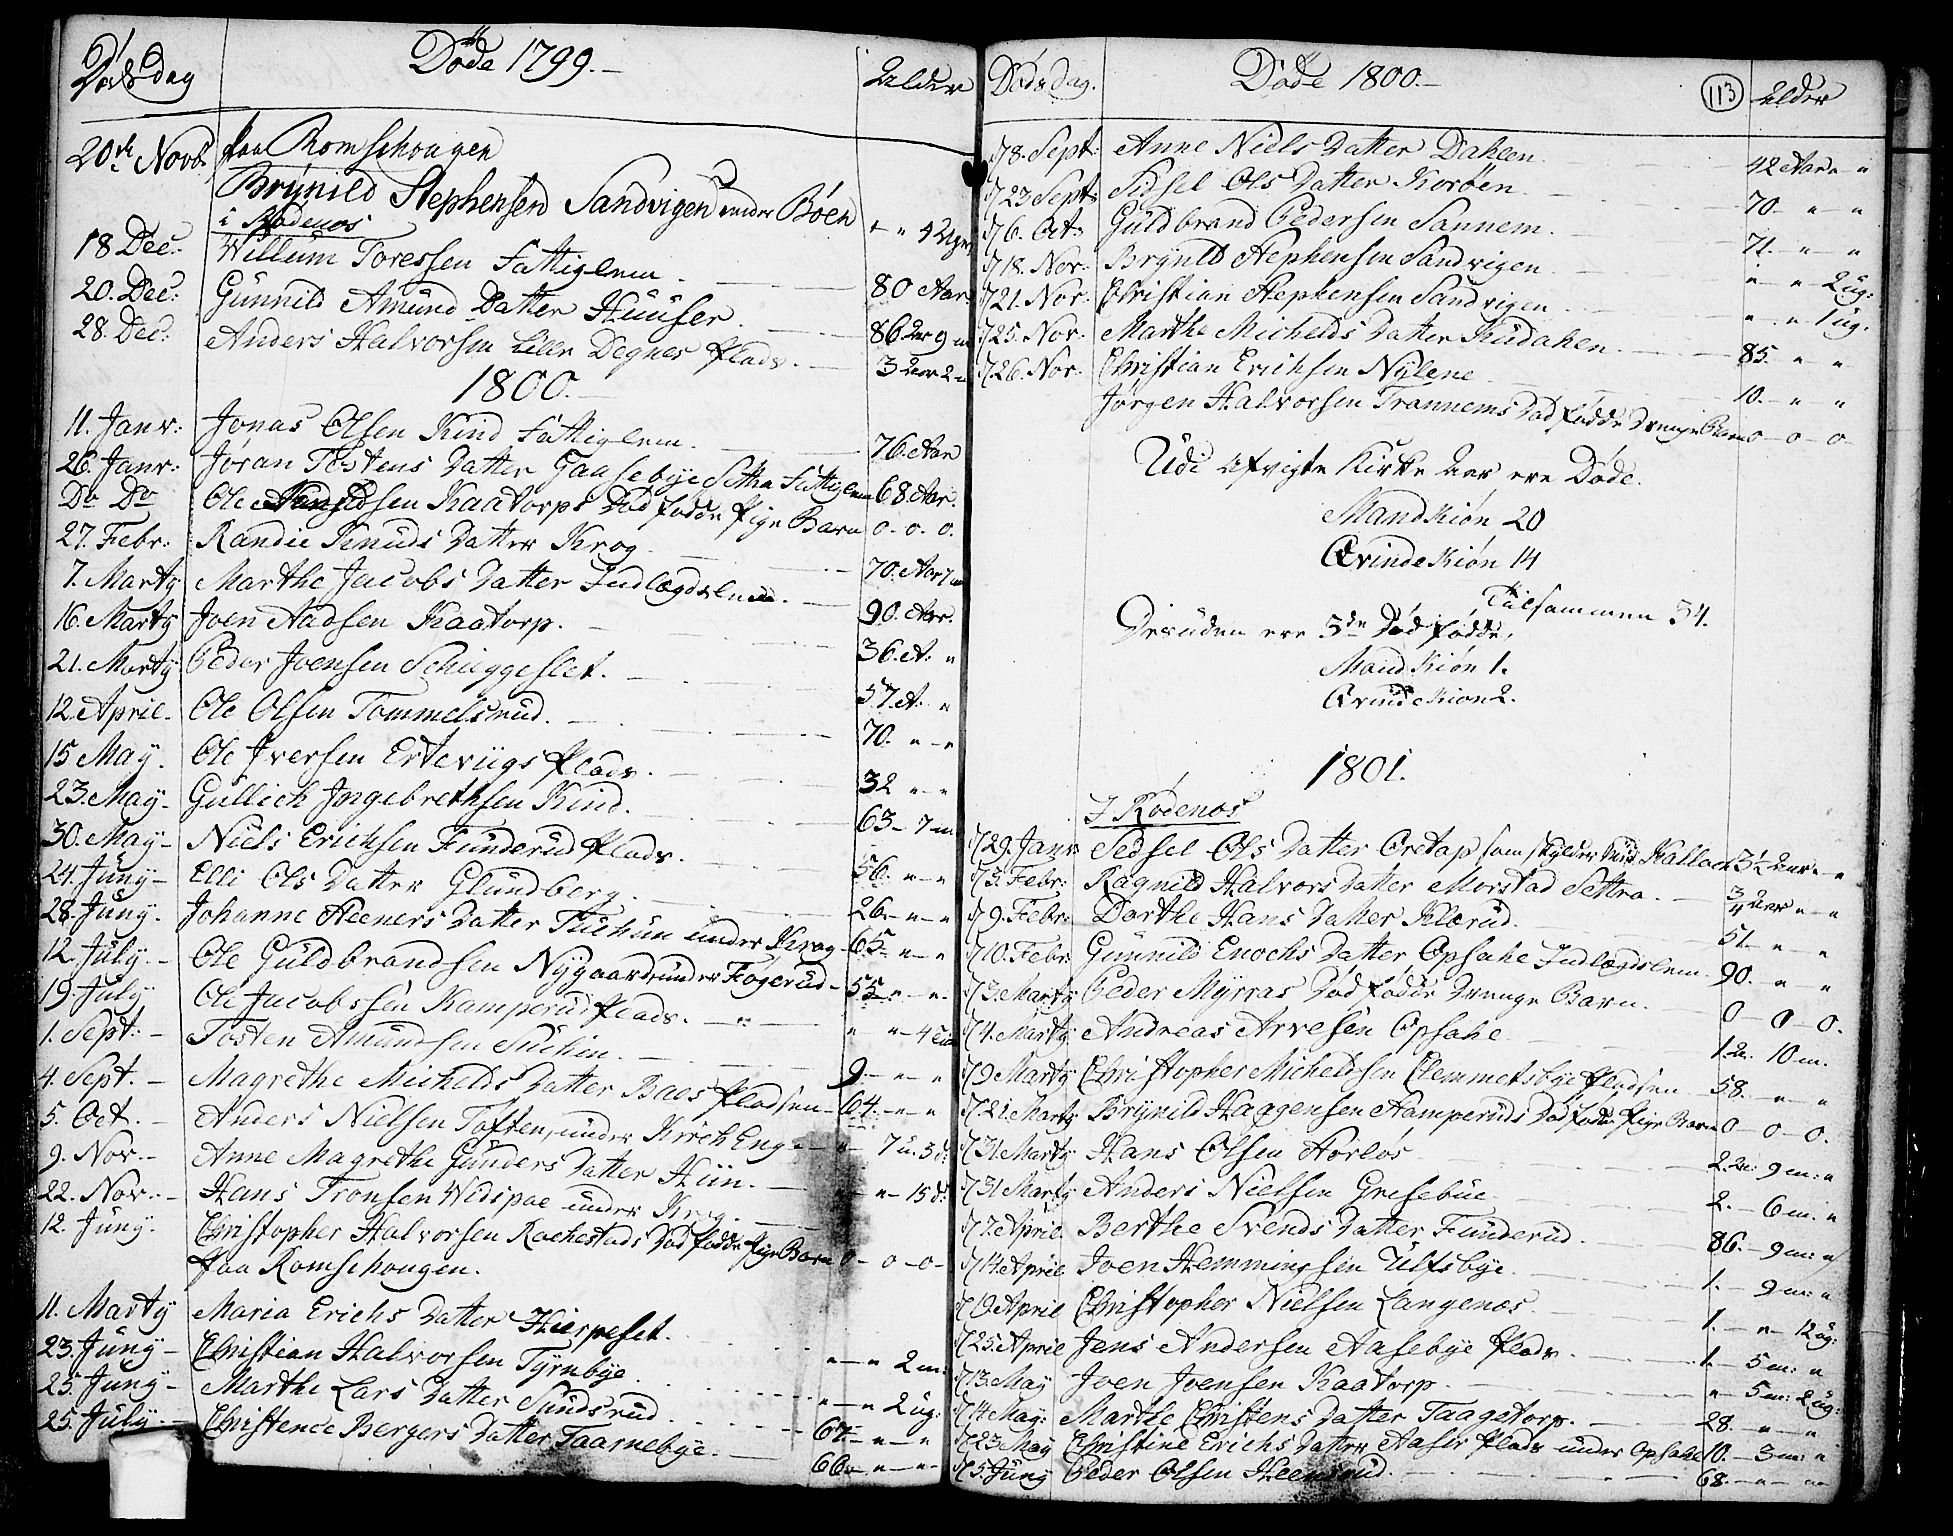 Dødsdag Døde 1799.- Alder
paa Romschougen
20de Novb. Brynild Stephensen Sandvigen under Bøen " " 4 Uger
i Rødenæs
18 Dec: Willum Toressen Fattiglem 80 Aar
20. Dec: Gunnild Amund Datter Huuser 86 Aar 9 m
28. Dec: Anders Halvorsen Lille Degnes Plads. 3 Aar 2 m
1800.
11. Janr: Jonas Olsen Kind Fattiglem. 76. Aar
26. Janr: Jøran Tostens Datter Gaasebye Settra Fattiglem 68. Aar.
Do Do Ole Kaatorps Død fødde Pige Barn 0. 0. 0.
27. Febr: Randie Knuds Datter Krog. 70. Aar 7 m
7. Marty Marthe Jacobs Datter Indlægdslem. 90. Aar.
16. Marty Joen Aadsen Kaatorp. 36. A: "
21. Marty Peder Joensen Schuggeslet. 57. A: "
12. April. Ole Olsen Tommelsrud. 70. " - "
15 May. Ole Iversen Erteviigs Plads. 32 " - "
23. May- Gullich Ingebrethsen Kind. 63 - 7 m
30. May- Niels Erichsen Funderud Plads. 56. " - "
24. Juny- Elli Ols Datter Glundberg. 26. - " - "
28. Juny. Johanne Steeners Datter under Krog 65 - " - "
12. July.- Ole Guldbrandsen Nygaard under Fogerud- 55 - " - "
19. July Ole Jacobssen Kamperud Plads. " " - 4
1. Sept:- Tosten Amundsen Suchin. 9. - " "
4. Sept.- Magrethe Michelds Datter Baes Pladsen 64. - " - "
5. Oct.- Anders Nielsen Toften under Kirch Eng - " - 7 u. 3 d:
9. Nov.- Anne Magrethe Gunders Datter Hiin. " - 15 d:
22. Nov.- Hans Tronsen Widspae under Krog.
12. Juny. Christopher Halvorsen Rachestads Død fødde Pige Barn 0 - 0 - 0-
paa Romschougen.
11. Marty Maria Erichs Datter Hierpeset. " - " 2 m:
23. Juny- Christian Halvorsen Tyrnbye. " - " 2 ug:
25. Juny- Marthe Lars Datter Sundsrud 67 - " - "
25. July- Christence Bergers Datter Taarnebye. 66. " - " -
Dødsdag. Døde 1800.- 113 Alder
8. Sept: Anne Niels Datter Dahlen. 42 Aar " "
23 Sept: Sidsel Ols Datter Korøen 70 - " - "
6. Oct: Guldbrand Pedersen Sannem. 71. - " - "
18. Nov: Brynild Stephensen Sandvigen " - " - 2 ug:
21. Nov: Christian Stephensen Sandvigen " - " 1 ug.
25. Nov: Marthe Michelds Datter Rudahen. 85. - " "
26. Nov: Christian Erichsen Nylene 10. - " - "
Jørgen Halvorsen Trannems Død fødde Drenge Barn 0 - 0 - 0 -
Udi Afvigte Kirke Aar ere Døde.
Mand Kiøn 20
Qvinde Kiøn 14
Tilsammen 34.
Desuden ere 3de Død fødde,
Mand Kiøn 1.
Qvinde Kion 2.
1801.
I Rødenæs
29. Janr Sidsel Ols Datter Oretap som skylder Kallach 3½ Aar - "
3. Febr: Ragnild Halvors Datter Morstad Settra. ¾ Aar " - "
9. Febr: Dorthe Hans Datter Klærud. 51. - " - "
10. Febr: Gunnild Enochs Datter Opsahe Indlægdslem 90. - " "
3. Marty Peder Myrras Død fødde Drenge Barn. 0 - 0 - 0.
4. Marty Andreas Arvesen Opsahe 1 a. 10 m.
9 Marty Christopher Micheldsen Clemmetsbye Pladsen 58. - " - "
21. Marty Brynild Haagensen Kamperuds Død fødde Pige Barn 0 - 0 - 0.
31. Marty Hans Olsen Horløs 2. a: 9 m: "
31. Marty Anders Nielsen Gresebue 2. - 6 m: "
7. April Berthe Svends Datter Funderud. 86. - 9 m: "
14. April Joen Hemmingsen Ulfsbye 1. - 9 m: "
19 April Christopher Nielsen Langenæs 1. - " - 12 ug:
25. April Jens Andersen Aasebye Plads 1. - 5 m: "
13. May Joen Joensen Kaatorp. " - 5 m: 2 ug:
14. May: Marthe Christens Datter Taagetorp. 28. - " - "
23. May Christine Erichs Datter Aaser Plads under Opsahe 10. - 3 m: "
5. Juny Peder Olsen Heensrud. 68. - " - "